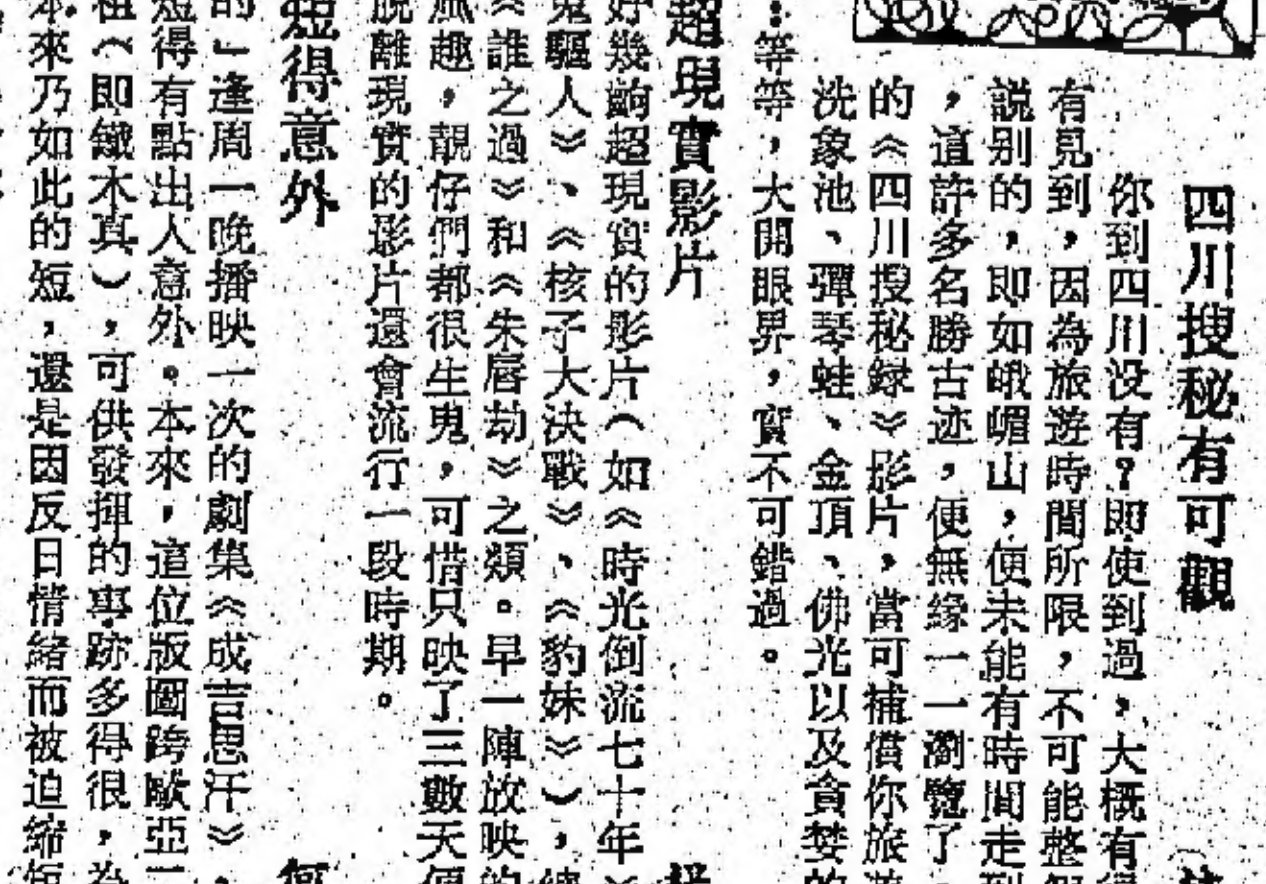 四川搜秘有可觀
你到四川没有？即使到過，大概有
有見到，因為旅遊時間所限，不可能整個
説别的，即如峨嵋山，便未能有時間走到
，這許多名勝古迹，便無緣一一瀏覽了。
的《四川搜秘録》影片，當可補償你旅遊
洗象池、彈琴蛙、金頂、佛光以及貪婪的
：等等，大開眼界，實不可錯過。
超現實影片
好幾齣超現實的影片（如《時光倒流七十年》
鬼驅人》、《核子大決戰》、《豹妹》），總
《誰之過》和《朱唇劫》之類。早一陣放映的
風趣，靚仔們都很生鬼，可惜只映了三數天便
脱離現實的影片還會流行一段時期。
短得意外
的」逢周一晚播映一次的劇集《成吉思汗》，
短得有點出人意外。本來，這位版圖跨歐亞二
祖（即鐵木真），可供發揮的事跡多得很，為
本來乃如此的短，還是因反日情緒而被迫縮短